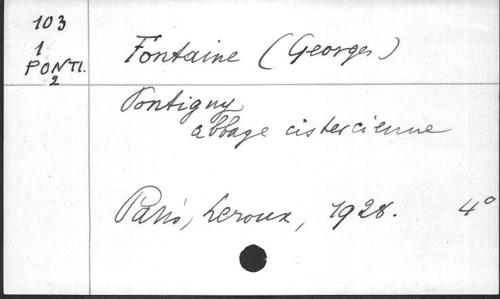 103
1
PONTI.
2
Fontaine (Georges)
Pontigny
abbaye cistercienne
Paris, Leroux, 1928. 4°